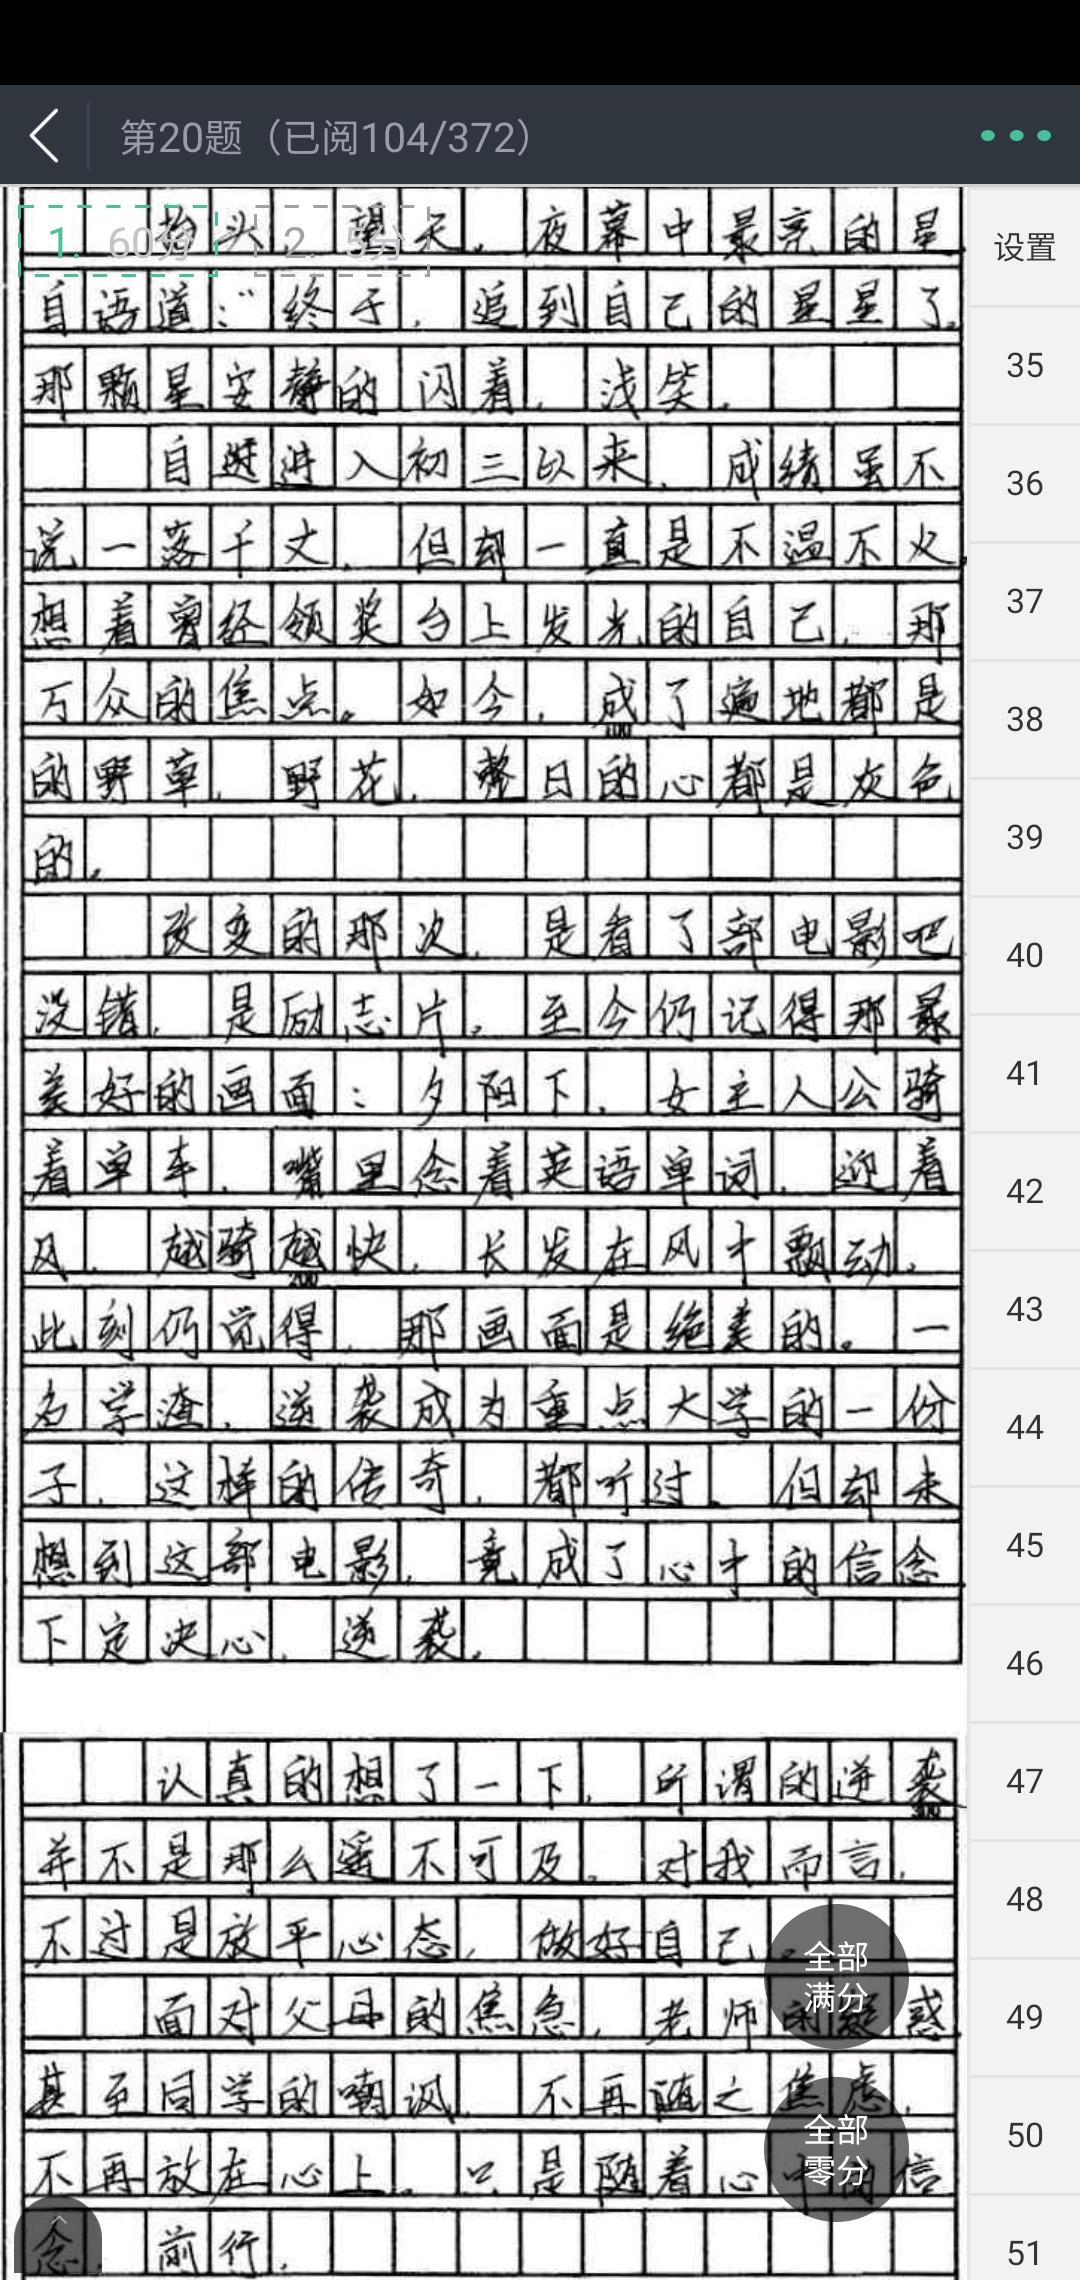 第20题（已阅104/372）
1. 60分 2. 5分
设置
35
36
37
38
39
40
41
42
43
44
45
46
47
48
49
50
51
抬头望天。夜幕中最亮的星，
自语道：“终于，追到自己的星星了。
那颗星安静的闪着，浅笑。
自进入初三以来，成绩虽不
说一落千丈，但却一直是不温不火，
想着曾经领奖台上发光的自己，那
万众的焦点。如今，成了遍地都是
100
的野草，野花，整日的心都是灰色
的。
改变的那次，是看了部电影吧，
没错，是励志片。至今仍记得那最
美好的画面：夕阳下，女主人公骑
着单车，嘴里念着英语单词，迎着
风，越骑越快，长发在风中飘动。
200
此刻仍觉得，那画面是绝美的。一
名学渣，逆袭成为重点大学的一份
子，这样的传奇，都听过，但却未
想到这部电影，竟成了心中的信念，
下定决心，逆袭。
认真的想了一下，所谓的逆袭，
300
并不是那么遥不可及。对我而言，
不过是放平心态，做好自己。
面对父母的焦急，老师的疑惑，
甚至同学的嘲讽，不再随之焦虑，
不再放在心上。只是随着心中的信
念，前行。
全部
满分
全部
零分